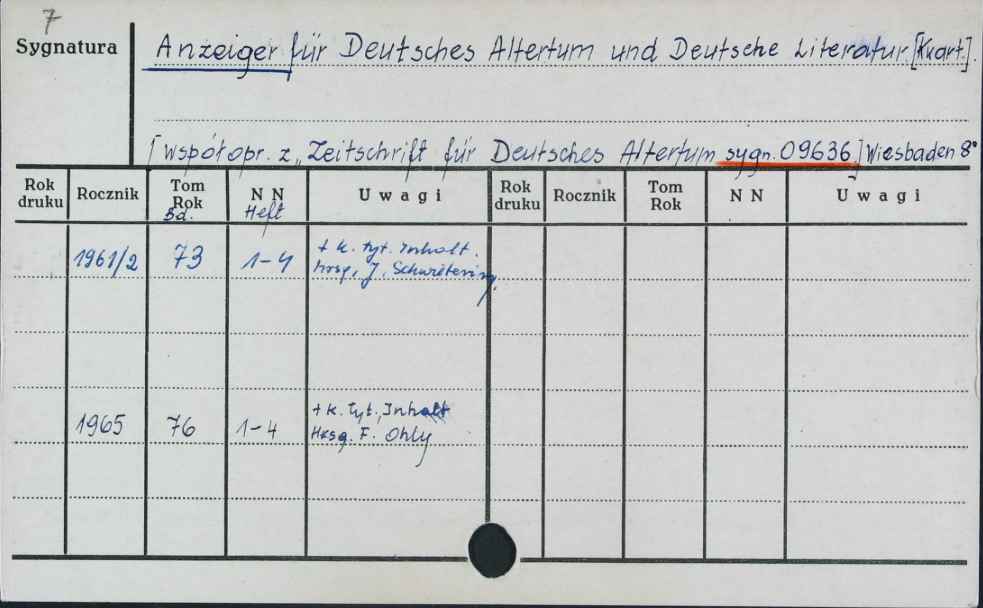 7
Sygnatura
Anzeiger für Deutsches Altertum und Deutsche Literatur. [Kwart.].
[współopr. z „Zeitschrift für Deutsches Altertum sygn. 09636] Wiesbaden 8°
Rok druku Rocznik Tom Rok Bd. N N Heft U w a g i Rok druku Rocznik Tom Rok N N U w a g i
1961/2 73 1-4 + k. tyt. Inhalt.
hrsg. J. Schwietering
1965 76 1-4 + k. tyt., Inhalt
Hrsg. F. Ohly